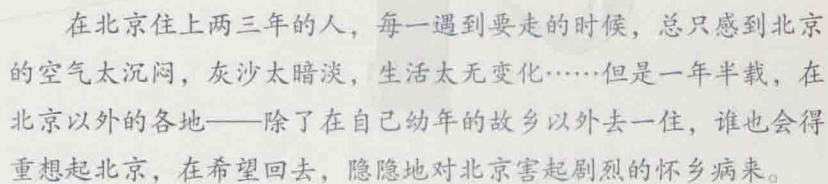 在北京住上两三年的人，每一遇到要走的时候，总只感到北京
的空气太沉闷，灰沙太暗淡，生活太无变化……但是一年半载，在
北京以外的各地——除了在自己幼年的故乡以外去一住，谁也会得
重想起北京，在希望回去，隐隐地对北京害起剧烈的怀乡病来。